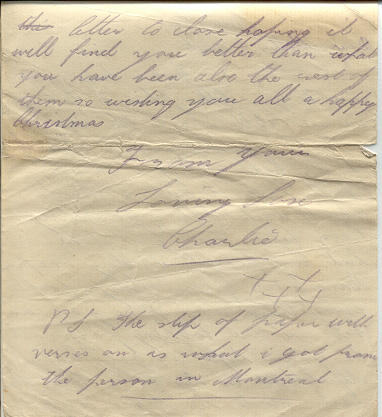 the letter to close hoping it
will find you better than what
you have been also the rest of
them so wishing you all a happy
Christmas
From Your
Loving Son
Charlie
PS The slip of paper with
verses on is what i got from
the person in Montreal